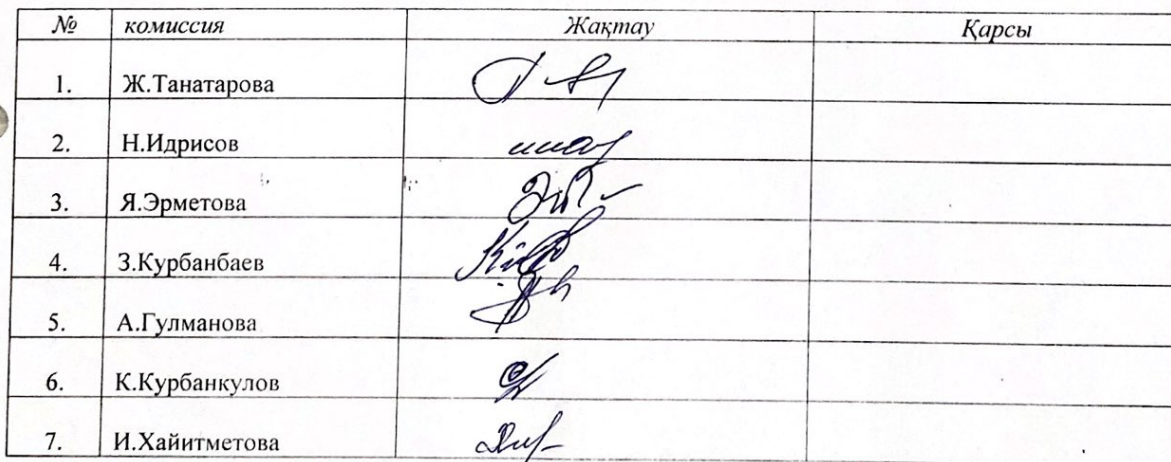 № комиссия Жақтау Қарсы
1. Ж.Танатарова
2. Н.Идрисов
3. Я.Эрметова
4. З.Курбанбаев
5. А.Гулманова
6. К.Курбанкулов
7. И.Хайитметова